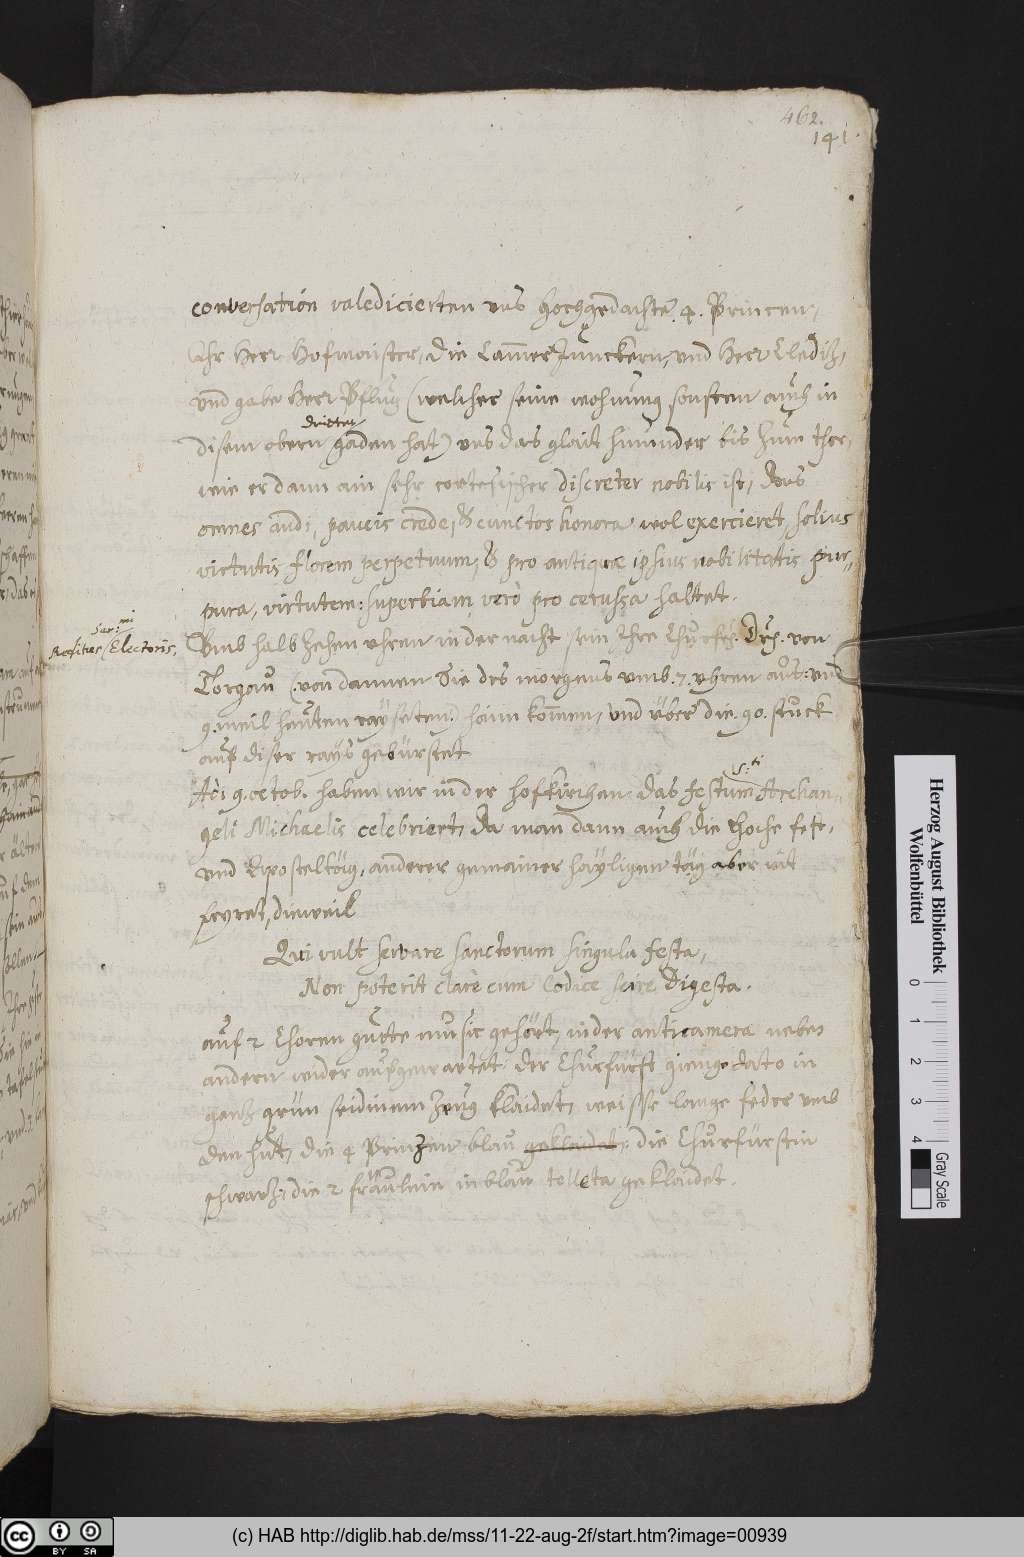 462.
141.
conversation valedicierten uns hochgedachte .4. Princen,
Ihr Herr Hofmaister, die Cam̄er Junckern, und Herr
und gabe Herr Pflug (welcher seine wohnung sonsten auch in
dritten
disem obern gaden hat) uns das glait hinunder bis zum thor,
wie er dann ain sehr cortesischer discreter nobilis ist, das
omnes audi, paucis crede, & cunctos honora wol exercieret, solius
virtutis florem perpetuum, & pro antiquæ ipsius nobilitatis pur-
pura, virtutem: superbiam verò pro cerussa haltet.
Ser:mi
Reditus Electoris.
Umb halb zehen uhren in der nacht sein Ihre Churfr. Dht. von
Torgau (von dannen Sie des morgens umb .7. uhren und
9. meil heuten rayseten) haim kom̄en, und über die .90. stuck
auf diser rays gebürstet
Adi 9. octob. haben wir in der hofkirchen das festum S:ti Archan-
geli Michaelis celebriert, da man dann auch die hoche fest,
und Aposteltäg, anderer gemainer hayligen täg aber nit
feyret, dieweil
Qui vult servare sanctorum singula festa,
Non poterit clarè cum Codice scire Digesta.
auf 2 Choren gutte music gehört, in der anticamera nebes
andern wider aufgewartet. der Churfürst gienge dato in
gantz grün seidinem zeug klaidet, weisse lange feder umb
den hut, die 4 Prinzen blau geklaidet, die Churfürstin
schwartz, die 2 fräulein in blau tolleta geklaidet.
Herzog August Bibliothek
Wolfenbüttel
0 1 2 3 4
Gray Scale
cc BY SA
(c) HAB http://diglib.hab.de/mss/11-22-aug-2f/start.htm?image=00939